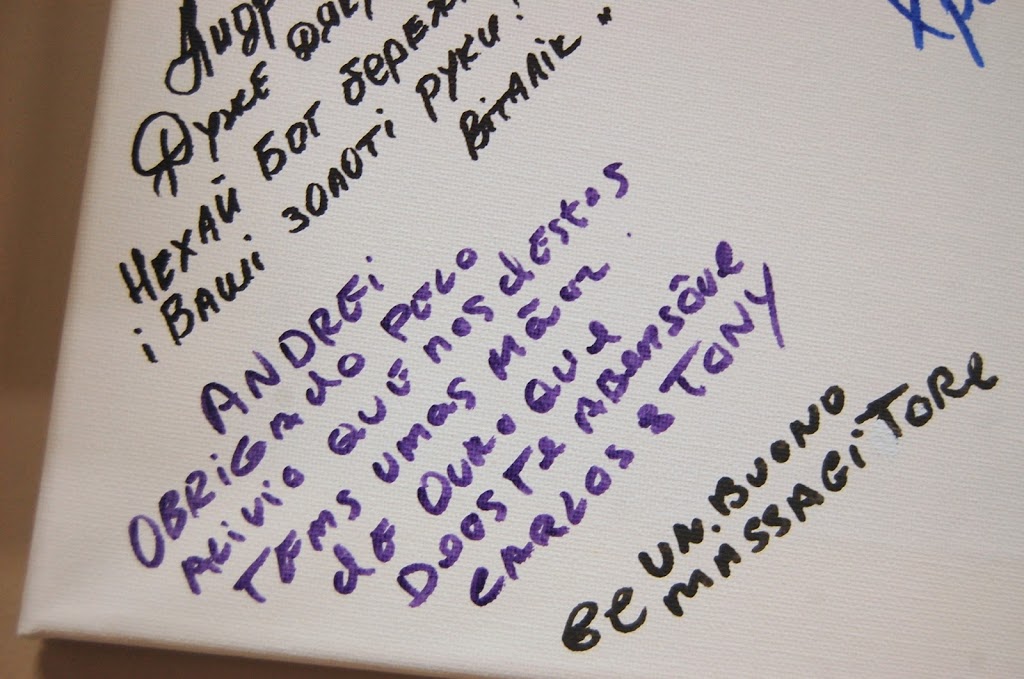 Андр
Дуже дяк
Нехай Бог береж
і Ваші золоті руки!
Віталік"
Хри
ANDREi
OBRIGADO PELO
Alivio QUE NOS dEStes
TEMS UMAS MÃOS
dE OURO QUE
DEOS Te ABENSÔUE
CARLOS & TONY
UN.BUONO
Be MASSAGiTORe